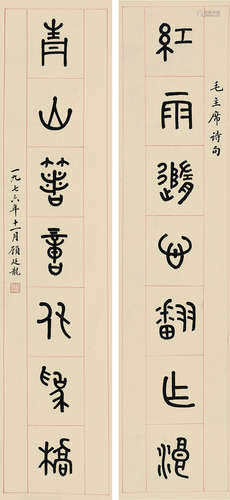 毛主席诗句
紅雨隨心翻乍浪
青山著意化為橋
一九七六年十一月顧廷龍